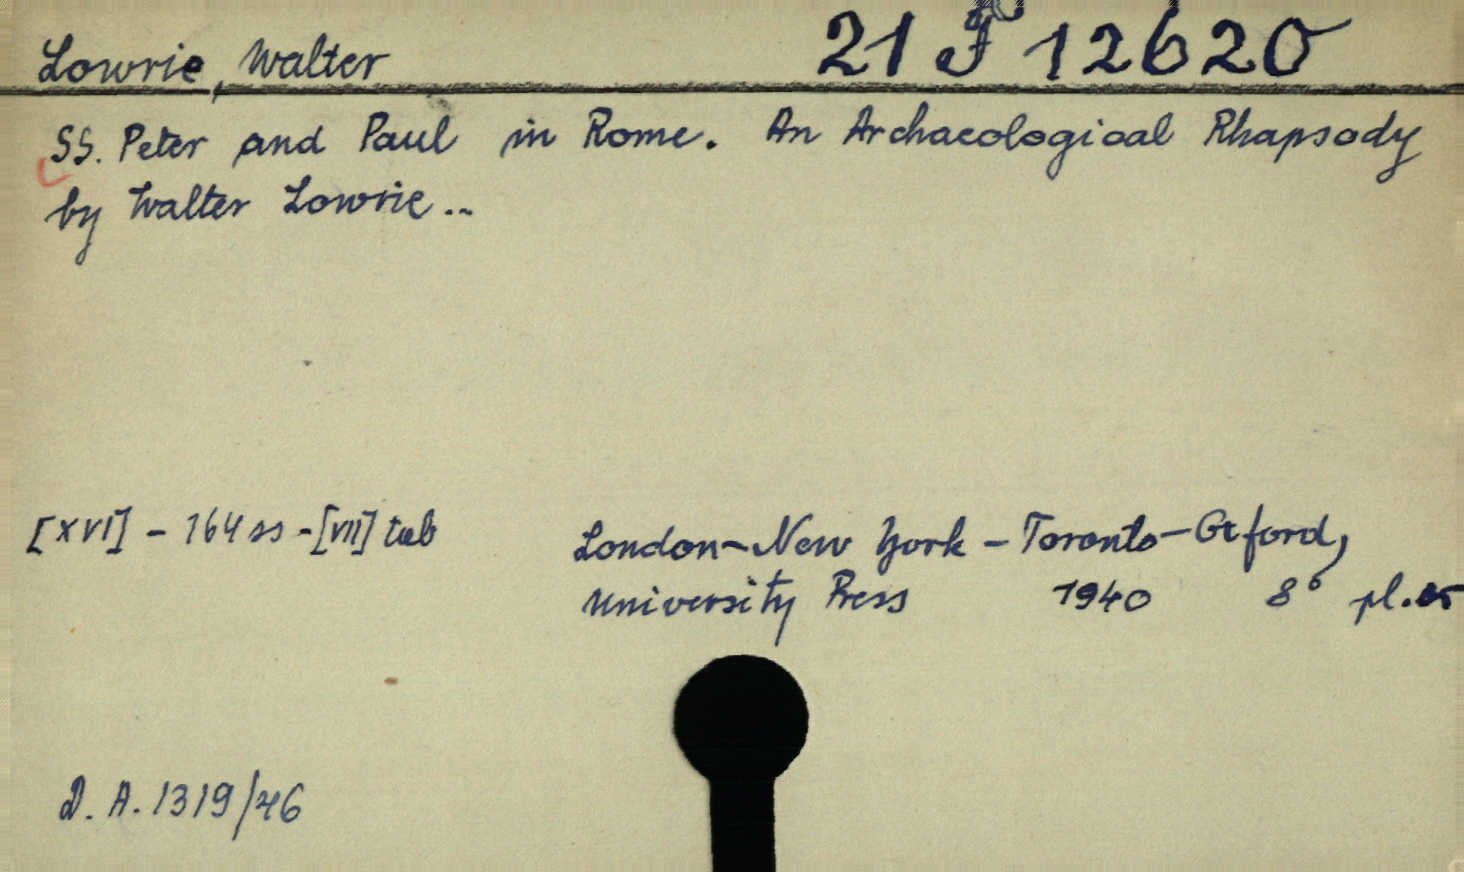 Lowrie, Walter 21 J 12620
SS. Peter and Paul in Rome. An Archaeological Rhapsody
by Walter Lowrie..
[XVI] - 164 ss - [VII] tab
London - New York - Toronto - Oxford,
University Press 1940 8° pl.
D. A. 1319/46